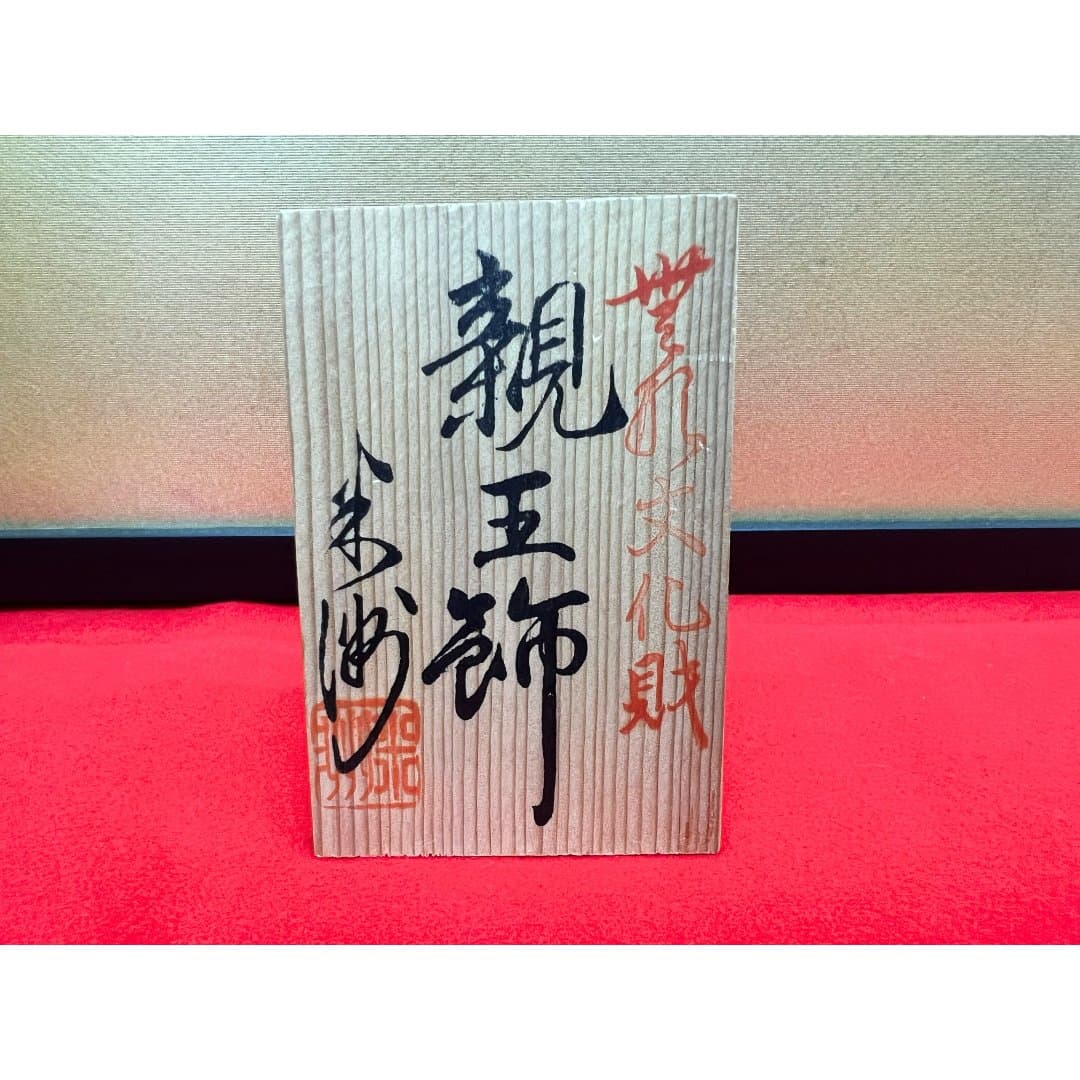 無形文化財
親王飾
米洲